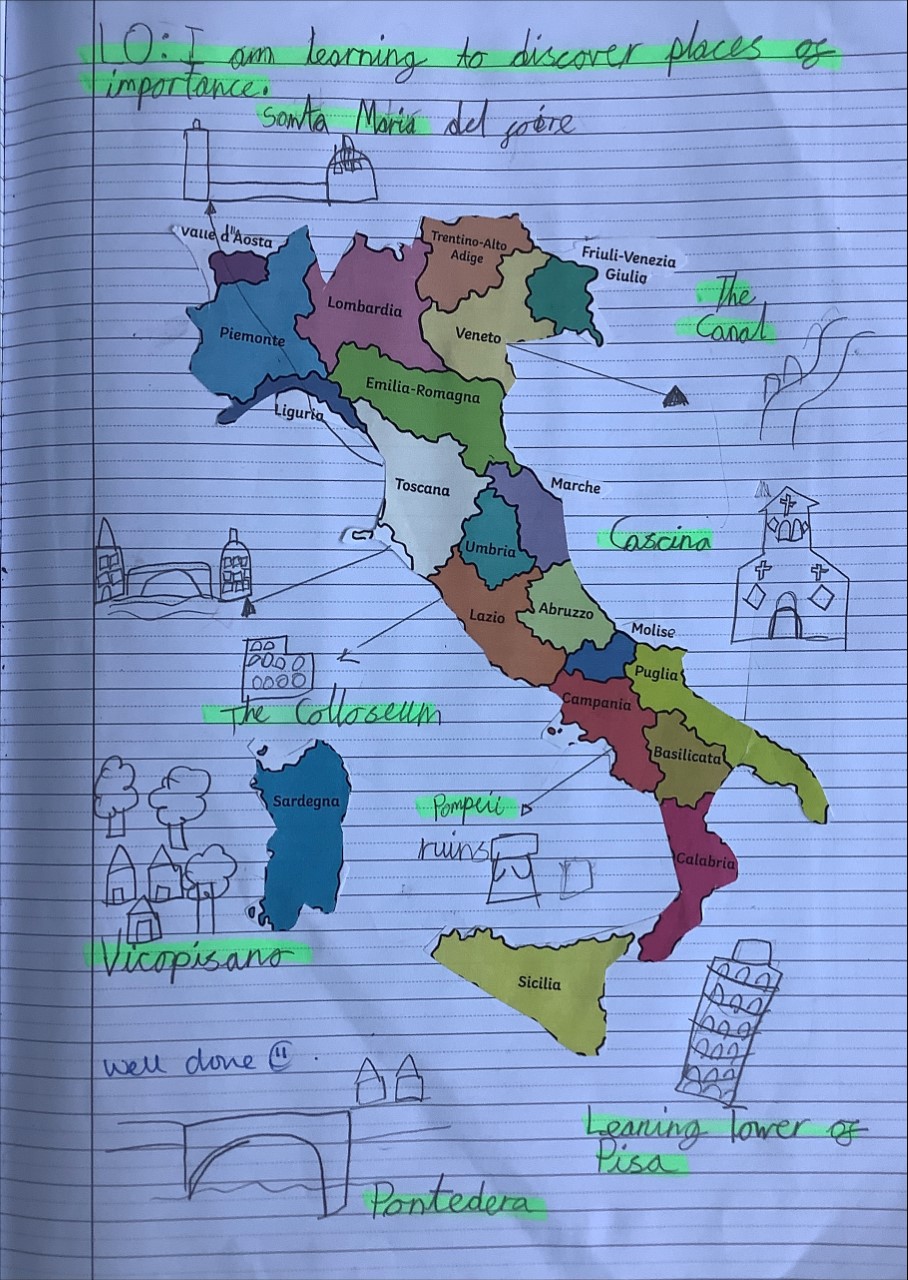 LO: I am learning to discover places of
importance.
Santa Maria del
Valle d'Aosta
Trentino-Alto
Adige
Friuli-Venezia
Giulia
The
Canal
Lombardia
Piemonte
Veneto
Emilia-Romagna
Liguria
Toscana
Marche
Cascina
Umbria
Lazio
Abruzzo
Molise
Puglia
Campania
The Colloseum
Basilicata
Sardegna
Pompeii
ruins
Calabria
Vicopisano
Sicilia
well done
Leaning Tower of
Pisa
Pontedera